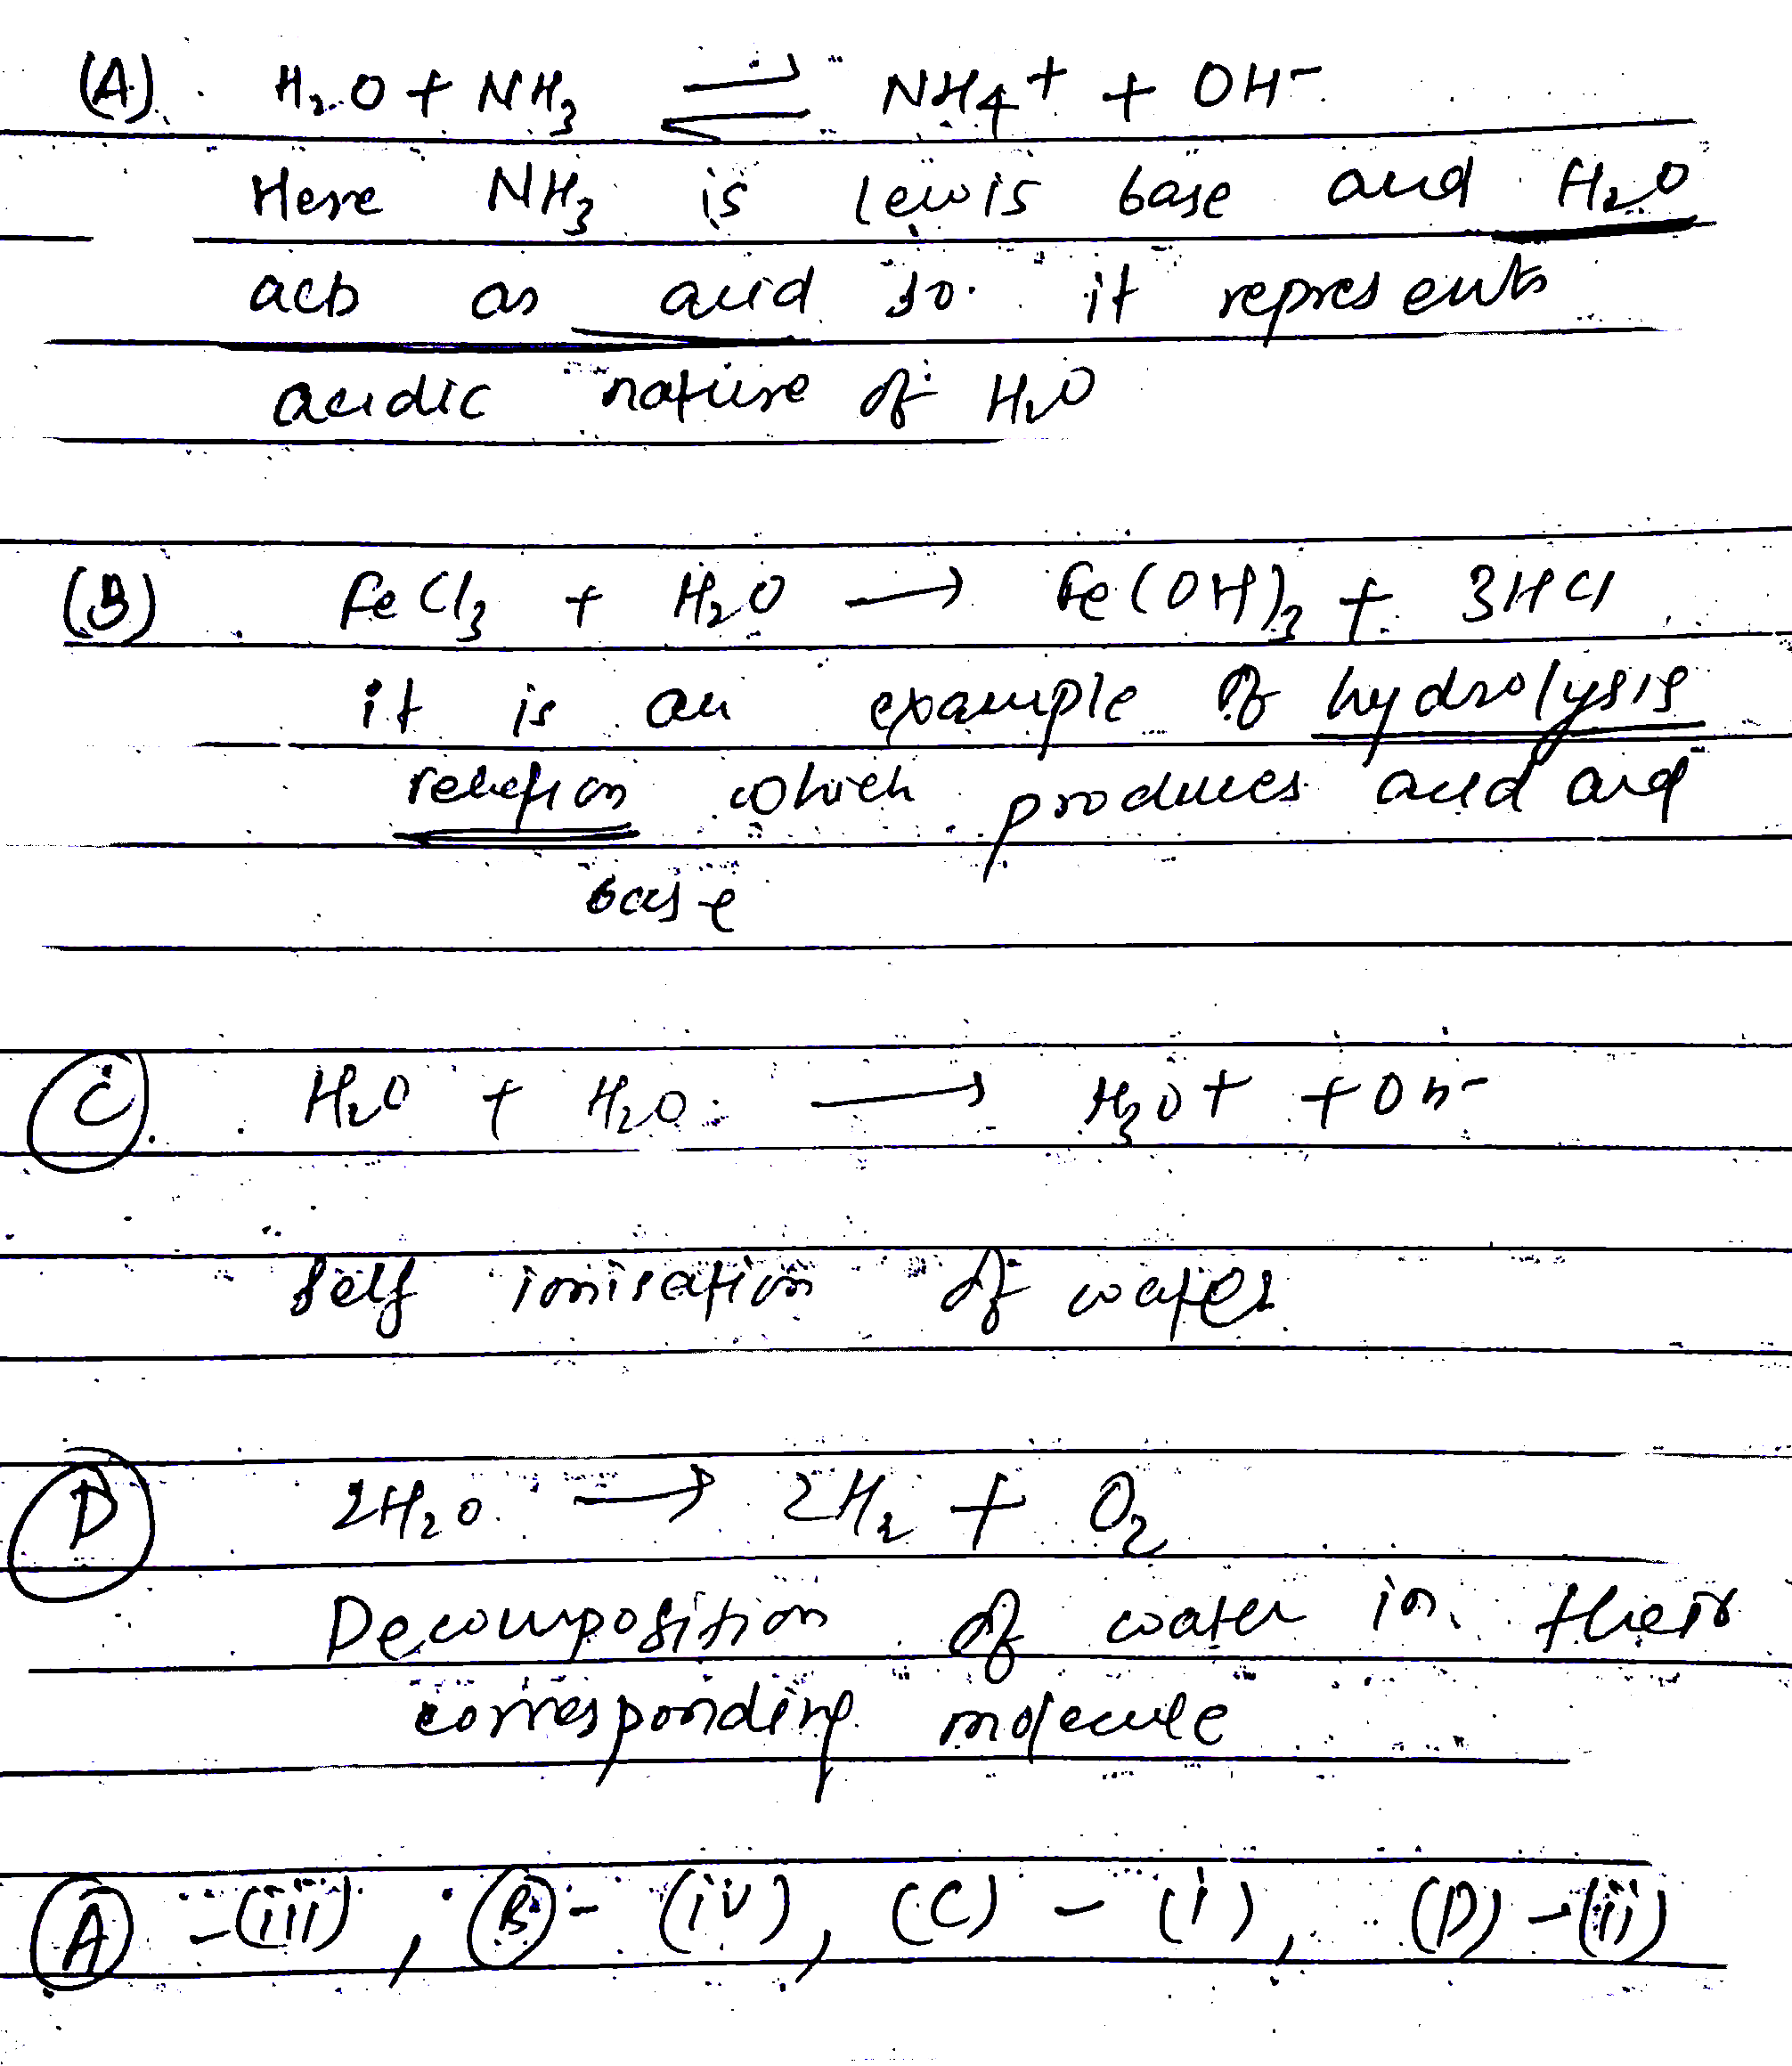 (A). H₂O + NH₃ ⇌ NH₄⁺ + OH⁻
Here NH₃ is lewis base and H₂O
acts as acid so it represents
acidic nature of H₂O
(B) FeCl₃ + H₂O → Fe(OH)₃ + 3HCl
it is an example of hydrolysis
which produces acid and
base
(C). H₂O + H₂O → H₃O⁺ + OH⁻
Self ionisation of water
(D) 2H₂O → 2H₂ + O₂
Decomposition of water in their
corresponding molecule
(A) - (iii), (B) - (iv), (C) - (i), (D) - (ii)